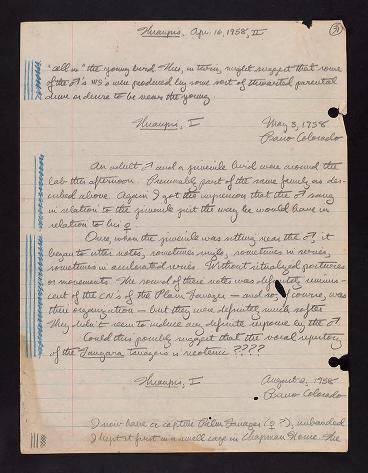 Thraupis, Apr. 16, 1958, II
31
"call in" the young bird. This, in turn, might suggest that some
of the ♂'s WS's were produced by some sort of thwarted parental
drive or desire to be near the young.
Thraupis, I
May 3, 1958
Barro Colorado
An adult ♂ and a juvenile bird were around the
lab this afternoon. Presumably part of the same family as des-
cribed above. Again I got the impression that the ♂ sang
in relation to the juvenile just the way he would have in
relation to his ♀.
Once, when the juvenile was sitting near the ♂, it
began to utter notes, sometimes singly, sometimes in series,
sometimes in accelerated series. Without ritualized postures
or movements. The sound of these notes was definitely reminis-
cent of the CN's of the Plain Tanager - and so, of course, was
their organization - but they were definitely much softer
They didn't seem to induce any definite response by the ♂.
Could this possibly suggest that the vocal repertory
of the Tangara tanagers is neotenic ????
Thraupis, I
August 2, 1958
Barro Colorado
I now have a captive Palm Tanager (♀?), unbanded
I kept it first in a small cage in Chapman House. The